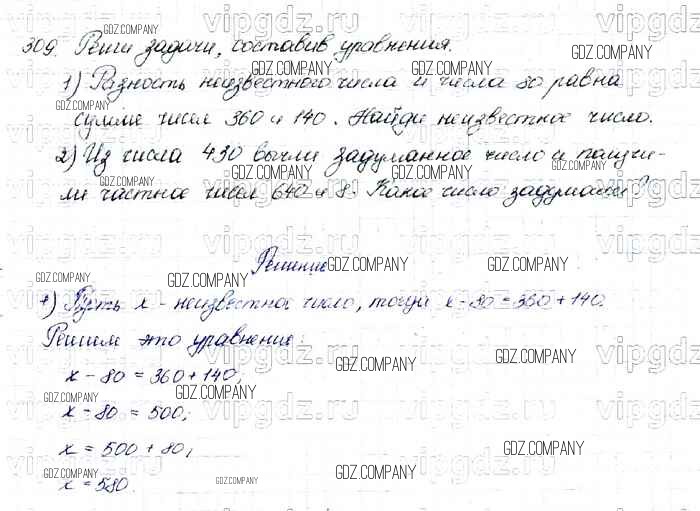 309. Реши задачи, составив уравнения.
1) Разность неизвестного числа и числа 80 равна
сумме чисел 360 и 140. Найди неизвестное число.
2) Из числа 430 вычли задуманное число и получи-
ли частное чисел 640 и 8. Какое число задумали?
Решение
1) Пусть x - неизвестное число, тогда x - 80 = 360 + 140.
Решим это уравнение:
x - 80 = 360 + 140;
x - 80 = 500;
x = 500 + 80;
x = 580.
vipgdz.ru
GDZ.COMPANY